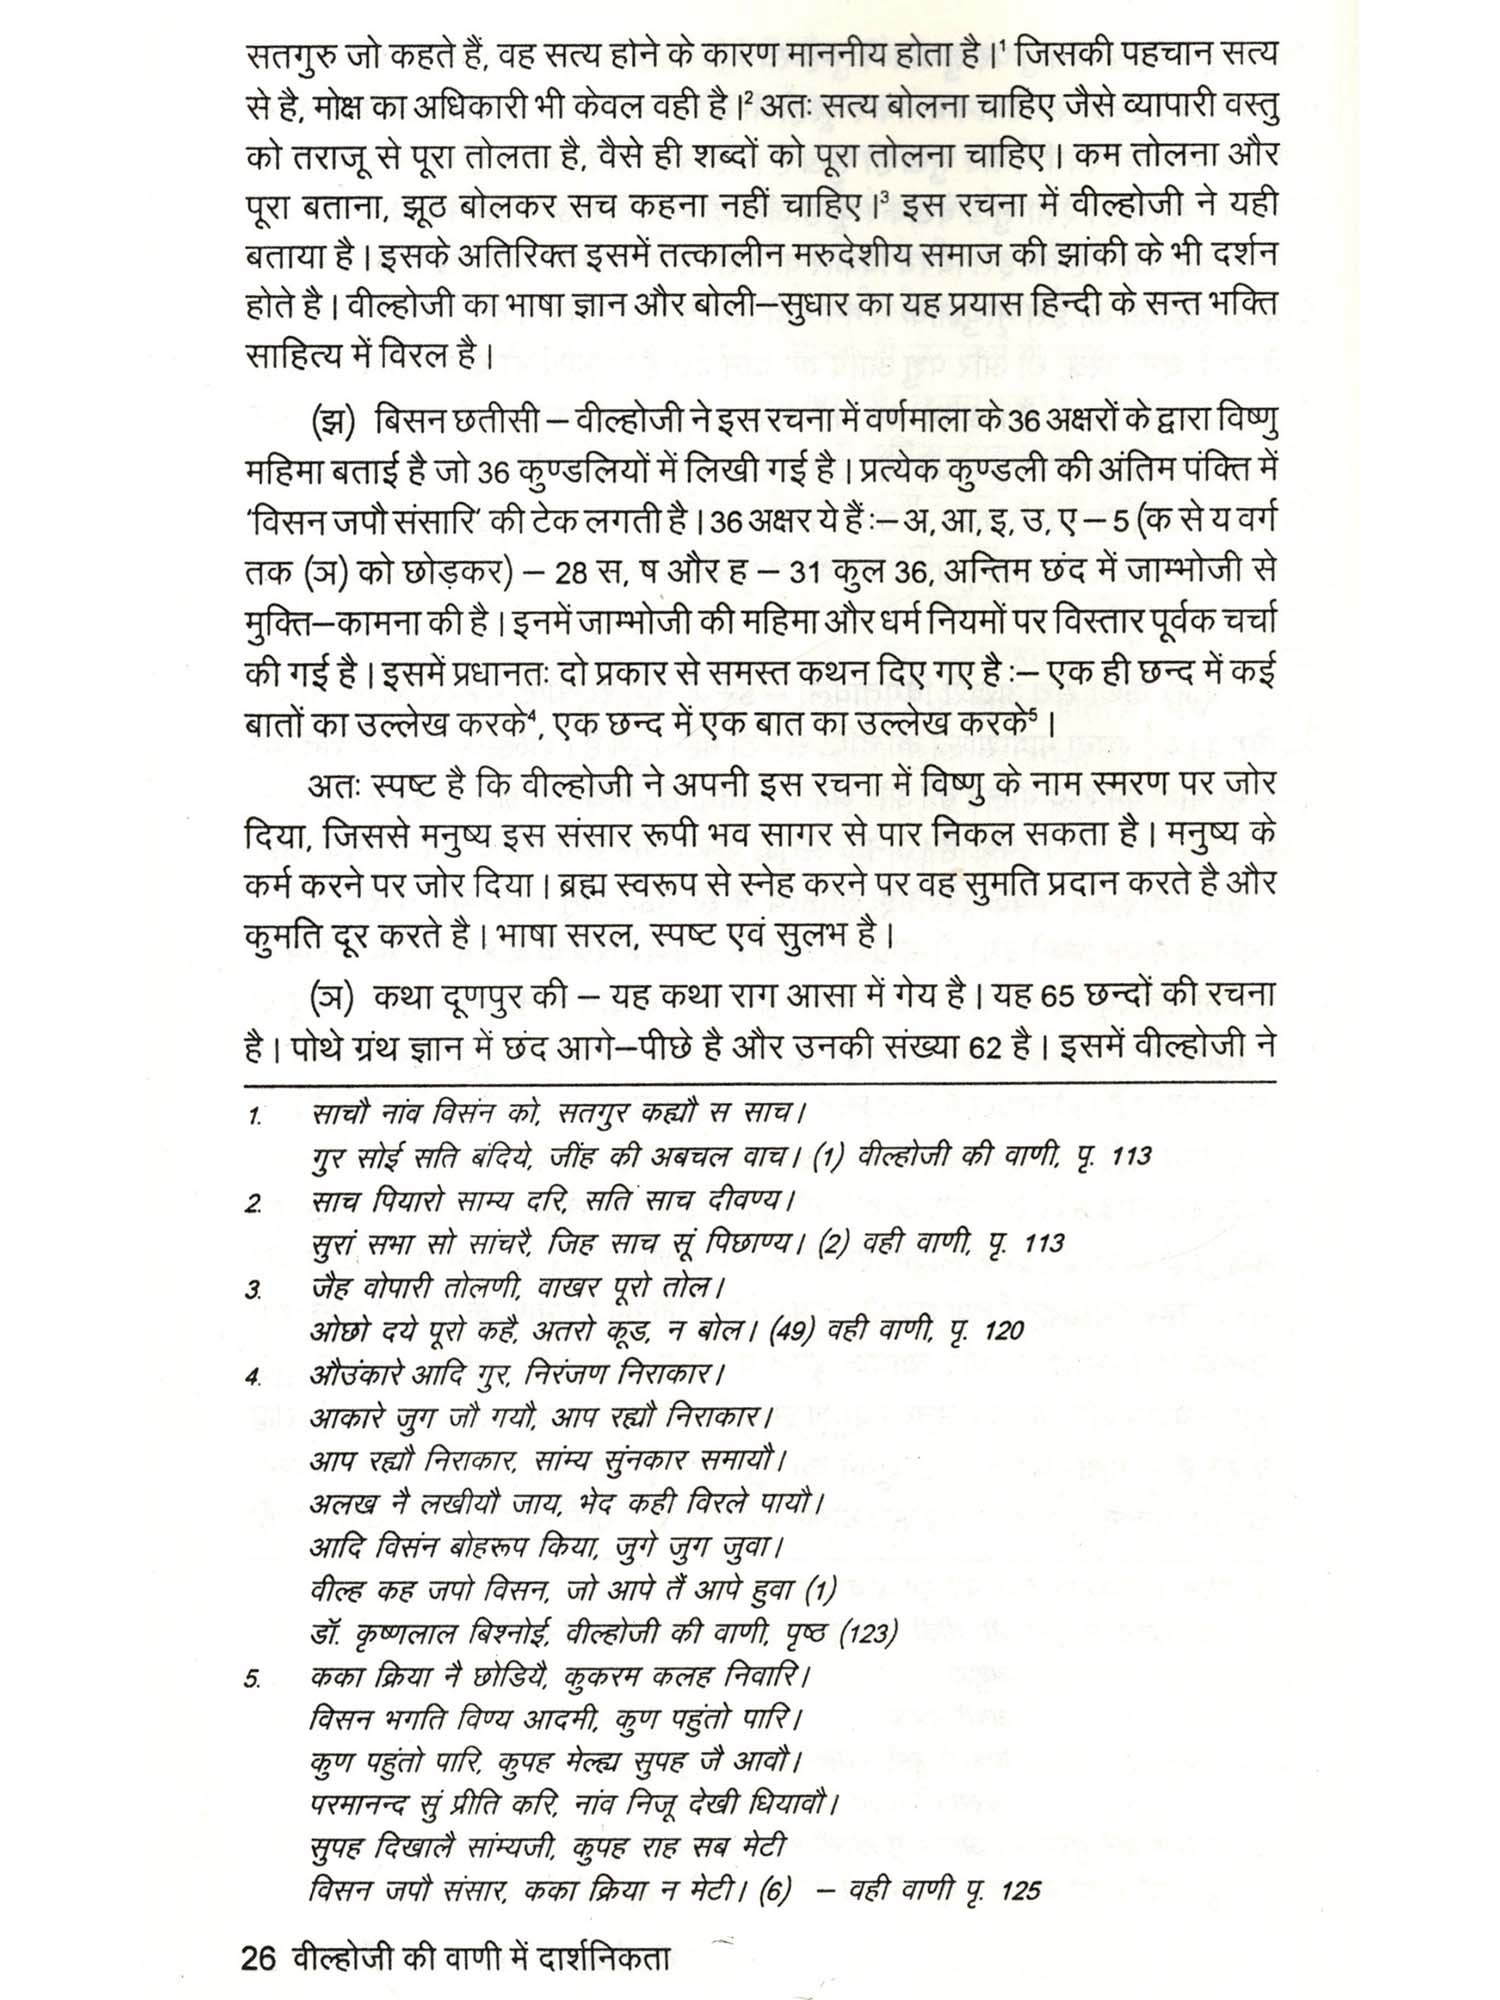 सतगुरु जो कहते हैं, वह सत्य होने के कारण माननीय होता है।¹ जिसकी पहचान सत्य
से है, मोक्ष का अधिकारी भी केवल वही है।² अतः सत्य बोलना चाहिए जैसे व्यापारी वस्तु
को तराजू से पूरा तोलता है, वैसे ही शब्दों को पूरा तोलना चाहिए। कम तोलना और
पूरा बताना, झूठ बोलकर सच कहना नहीं चाहिए।³ इस रचना में वील्होजी ने यही
बताया है। इसके अतिरिक्त इसमें तत्कालीन मरुदेशीय समाज की झांकी के भी दर्शन
होते है। वील्होजी का भाषा ज्ञान और बोली–सुधार का यह प्रयास हिन्दी के सन्त भक्ति
साहित्य में विरल है।
(झ) बिसन छतीसी – वील्होजी ने इस रचना में वर्णमाला के 36 अक्षरों के द्वारा विष्णु
महिमा बताई है जो 36 कुण्डलियों में लिखी गई है। प्रत्येक कुण्डली की अंतिम पंक्ति में
'विसन जपौ संसारि' की टेक लगती है। 36 अक्षर ये हैं :– अ, आ, इ, उ, ए – 5 (क से य वर्ग
तक (ञ) को छोड़कर) – 28 स, ष और ह – 31 कुल 36, अन्तिम छंद में जाम्भोजी से
मुक्ति–कामना की है। इनमें जाम्भोजी की महिमा और धर्म नियमों पर विस्तार पूर्वक चर्चा
की गई है। इसमें प्रधानतः दो प्रकार से समस्त कथन दिए गए है :– एक ही छन्द में कई
बातों का उल्लेख करके⁴, एक छन्द में एक बात का उल्लेख करके⁵।
अतः स्पष्ट है कि वील्होजी ने अपनी इस रचना में विष्णु के नाम स्मरण पर जोर
दिया, जिससे मनुष्य इस संसार रूपी भव सागर से पार निकल सकता है। मनुष्य के
कर्म करने पर जोर दिया। ब्रह्म स्वरूप से स्नेह करने पर वह सुमति प्रदान करते है और
कुमति दूर करते है। भाषा सरल, स्पष्ट एवं सुलभ है।
(ञ) कथा दूणपुर की – यह कथा राग आसा में गेय है। यह 65 छन्दों की रचना
है। पोथे ग्रंथ ज्ञान में छंद आगे–पीछे है और उनकी संख्या 62 है। इसमें वील्होजी ने
1. साचौ नांव विसंन को, सतगुर कह्यौ स साच।
गुर सोई सति बंदिये, जींह की अबचल वाच। (1) वील्होजी की वाणी, पृ. 113
2. साच पियारो साम्य दरि, सति साच दीवण्य।
सुरां सभा सो सांचरै, जिह साच सूं पिछाण्य। (2) वही वाणी, पृ. 113
3. जैह वोपारी तोलणी, वाखर पूरो तोल।
ओछो दये पूरो कहै, अतरो कूड, न बोल। (49) वही वाणी, पृ. 120
4. औउंकारे आदि गुर, निरंजण निराकार।
आकारे जुग जौ गयौ, आप रह्यौ निराकार।
आप रह्यौ निराकार, सांम्य सुंनकार समायौ।
अलख नै लखीयौ जाय, भेद कही विरले पायौ।
आदि विसंन बोहरूप किया, जुगे जुग जुवा।
वील्ह कह जपो विसन, जो आपे तैं आपे हुवा (1)
डॉ. कृष्णलाल बिश्नोई, वील्होजी की वाणी, पृष्ठ (123)
5. कका क्रिया नै छोडियै, कुकरम कलह निवारि।
विसन भगति विण्य आदमी, कुण पहुंतो पारि।
कुण पहुंतो पारि, कुपह मेल्ह्य सुपह जै आवौ।
परमानन्द सुं प्रीति करि, नांव निजू देखी धियावौ।
सुपह दिखालै सांम्यजी, कुपह राह सब मेटी
विसन जपौ संसार, कका क्रिया न मेटी। (6) – वही वाणी पृ. 125
26 वील्होजी की वाणी में दार्शनिकता